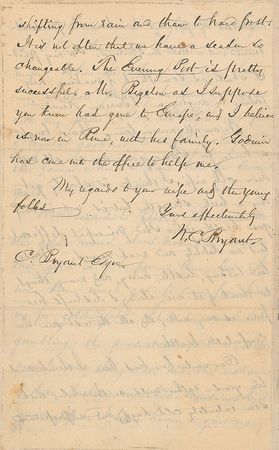 shifting from rain and thaw to hard frost.
It is not often that we have a season so
changeable. The Evening Post is pretty
successful. Mr. Bigelow as I suppose
you know has gone to Europe, and I believe
is now in Rome, with his family. Godwin
has come into the office to help me.
My regards to your wife and the young
folks.
Yrs affectionately
W. C. Bryant.
C. Bryant Esq.